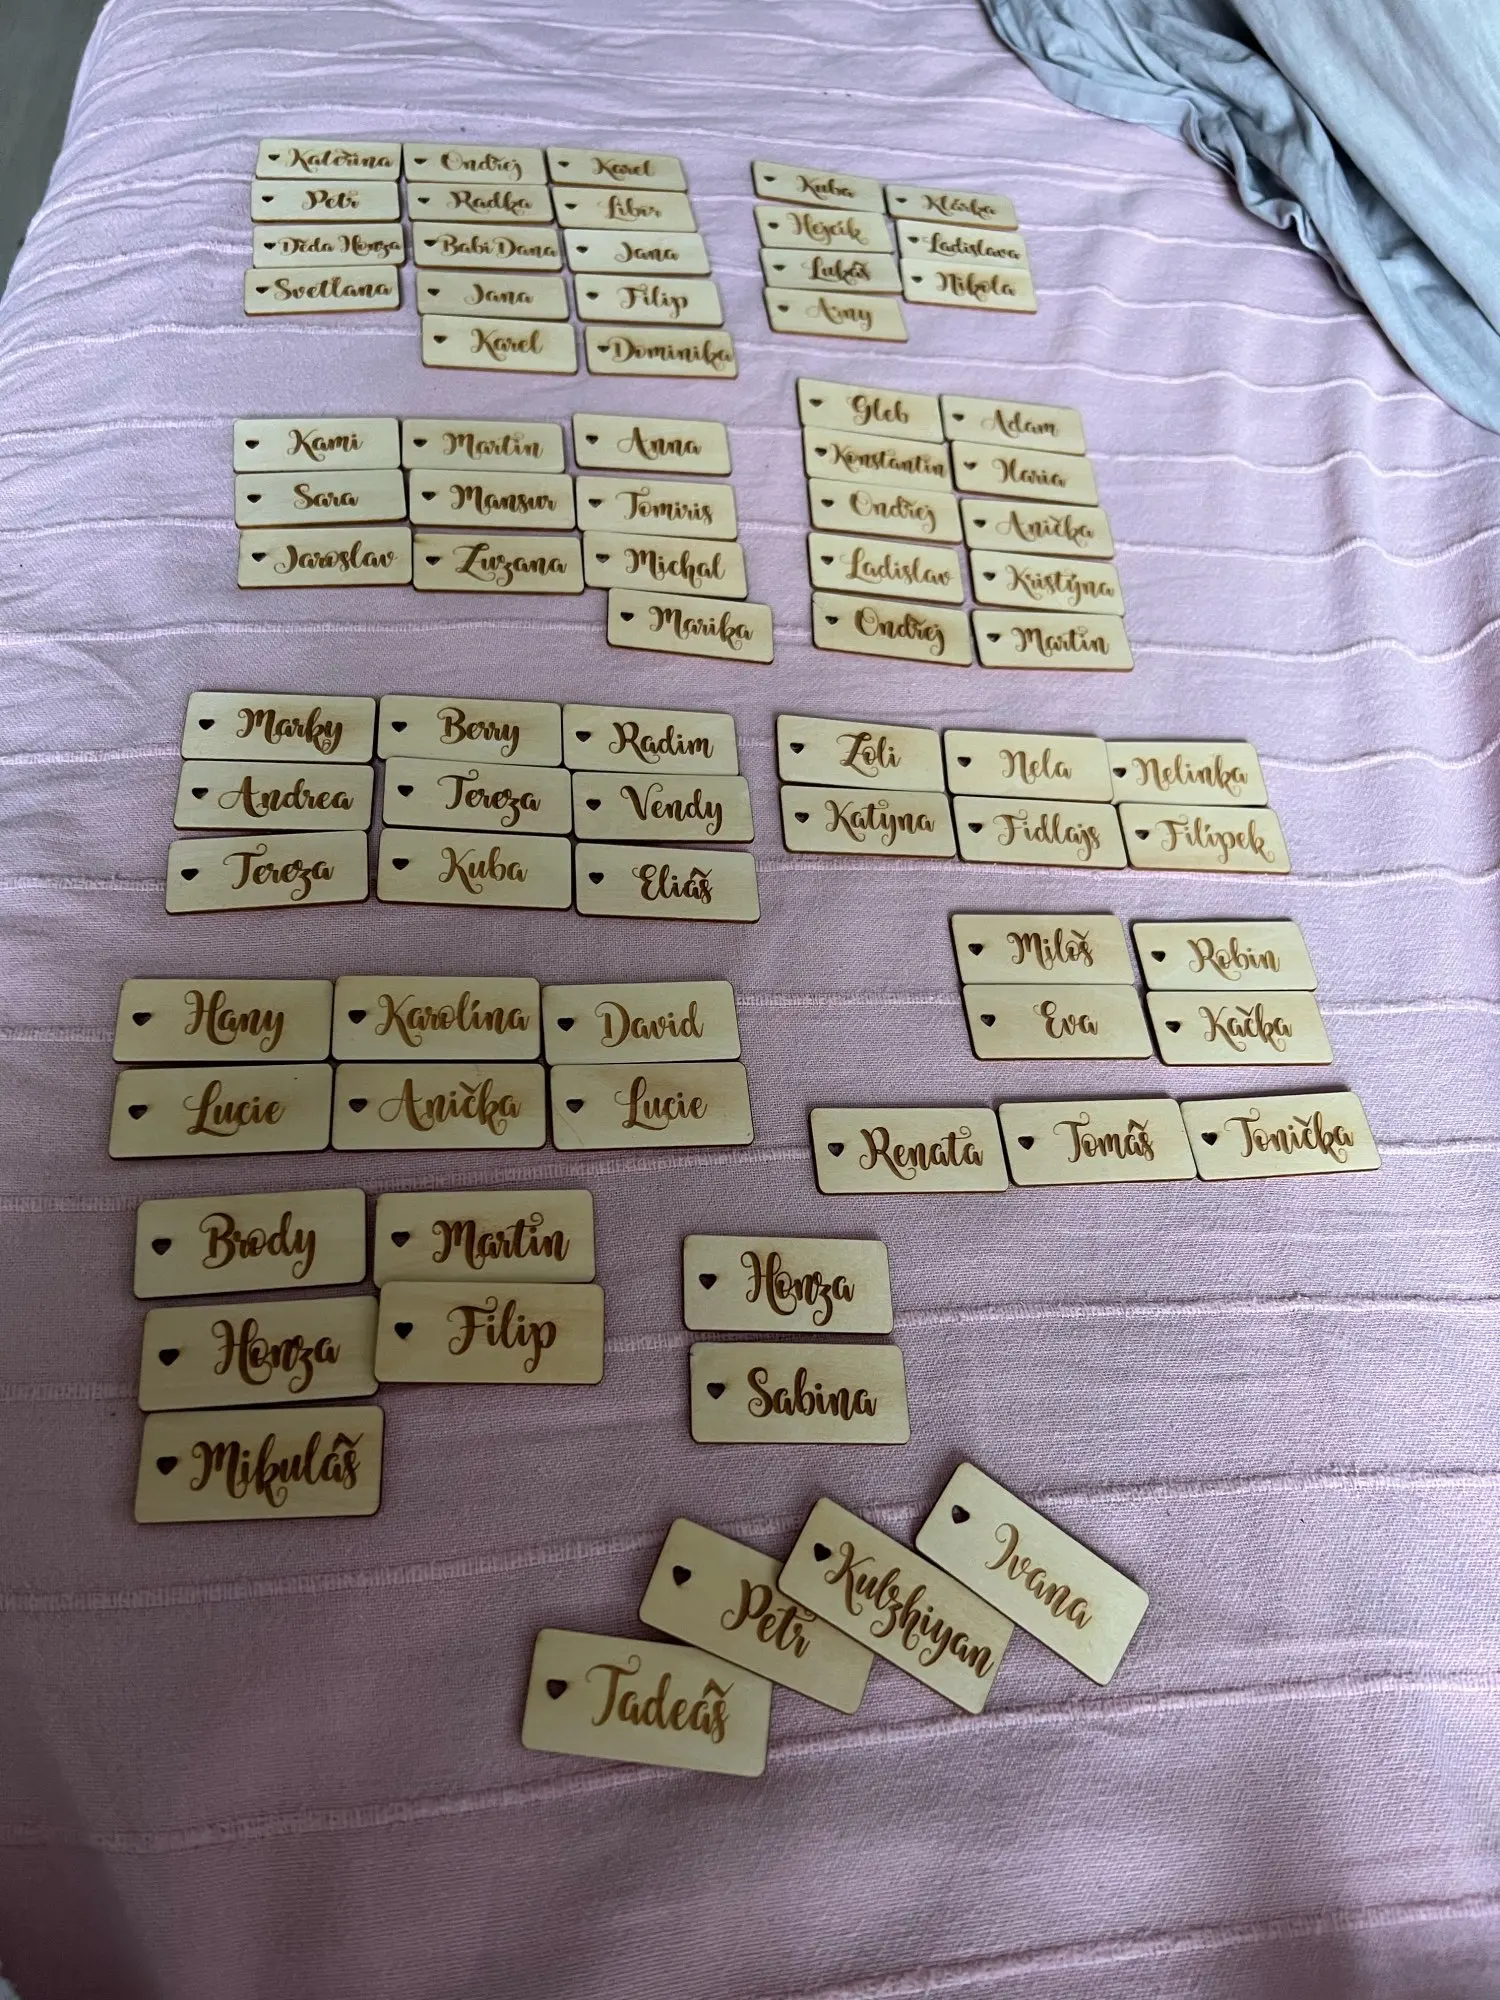 Kateřina
Ondřej
Karel
Petr
Radka
Libor
Děda Honza
Babi Dana
Jana
Svetlana
Jana
Filip
Karel
Dominika
Kuba
Klárka
Hejcik
Ladislava
Lukáš
Nikola
Arny
Kami
Martin
Anna
Sara
Mansur
Tomiris
Jaroslav
Zuzana
Michal
Marika
Gleb
Adam
Konstantin
Ilaria
Ondřej
Anička
Ladislav
Kristýna
Ondřej
Martin
Marky
Berry
Radim
Andrea
Tereza
Vendy
Tereza
Kuba
Eliáš
Zoli
Nela
Nelinka
Katyna
Fidlajs
Filípek
Miloš
Robin
Eva
Kačka
Hany
Karolína
David
Lucie
Anička
Lucie
Renata
Tomáš
Tonička
Brody
Martin
Honza
Filip
Mikuláš
Honza
Sabina
Tadeáš
Petr
Kulzhiyan
Ivana